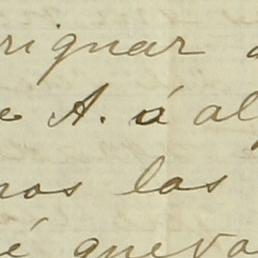 rignar
e A. á al
nos las
é queva